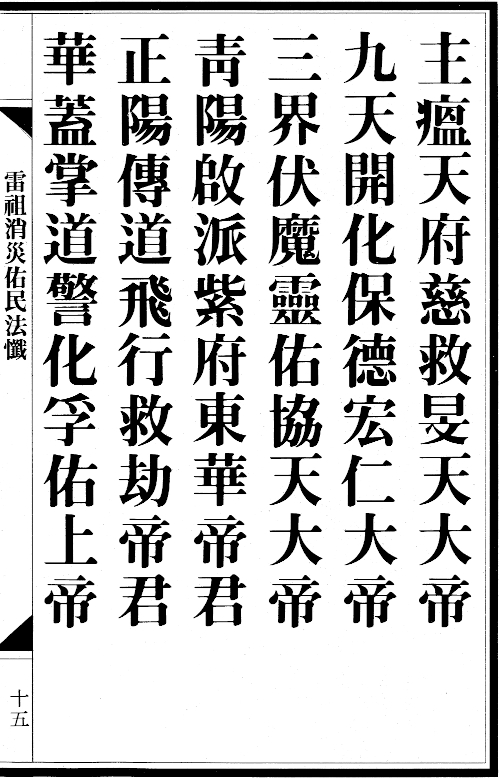 主瘟天府慈救旻天大帝
九天開化保德宏仁大帝
三界伏魔靈佑協天大帝
青陽啟派紫府東華帝君
正陽傳道飛行救劫帝君
華蓋掌道警化孚佑上帝
雷祖消災佑民法懺
十五